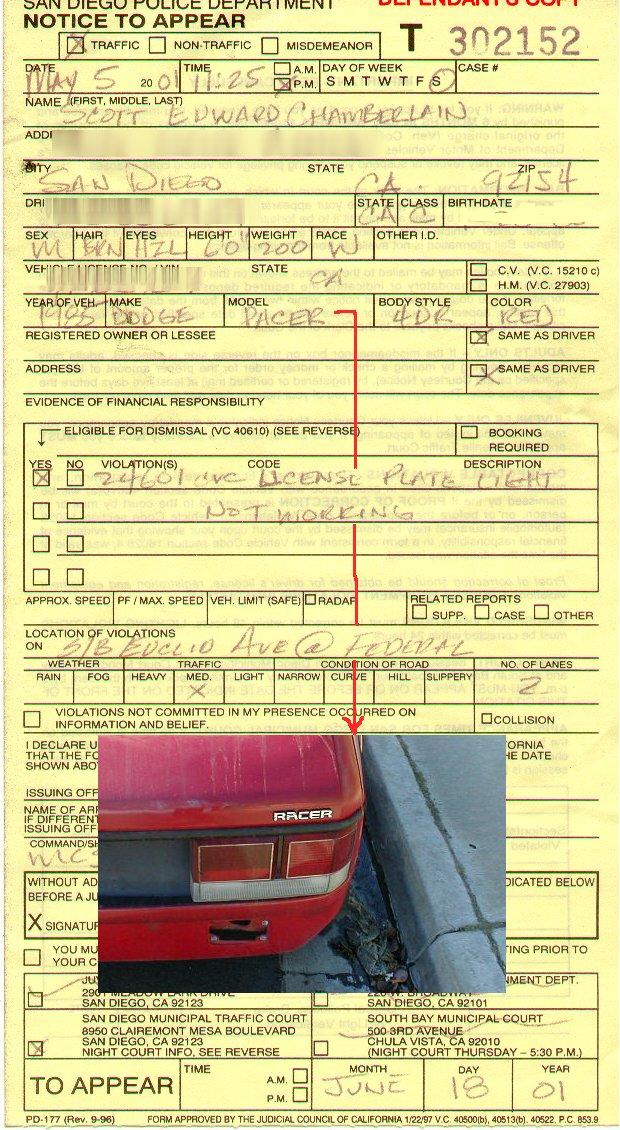 SAN DIEGO POLICE DEPARTMENT DEFENDANT'S COPY
NOTICE TO APPEAR
TRAFFIC NON-TRAFFIC MISDEMEANOR T 302152
DATE TIME A.M. P.M. DAY OF WEEK CASE #
MAY 5 2001 11:25 S M T W T F S
NAME (FIRST, MIDDLE, LAST)
SCOTT EDWARD CHAMBERLAIN
ADD
CITY STATE ZIP
SAN DIEGO CA. 92154
DRI STATE CLASS BIRTHDATE
CA C
SEX HAIR EYES HEIGHT WEIGHT RACE OTHER I.D.
M BRN HZL 60 200 W
VEHICLE LICENSE NO. / VIN STATE C.V. (V.C. 15210 c)
CA H.M. (V.C. 27903)
YEAR OF VEH. MAKE MODEL BODY STYLE COLOR
1985 DODGE PACER 4DR RED
REGISTERED OWNER OR LESSEE SAME AS DRIVER
ADDRESS SAME AS DRIVER
EVIDENCE OF FINANCIAL RESPONSIBILITY
ELIGIBLE FOR DISMISSAL (VC 40610) (SEE REVERSE) BOOKING REQUIRED
YES NO VIOLATION(S) CODE DESCRIPTION
24601 CVC LICENSE PLATE LIGHT
NOT WORKING
APPROX. SPEED PF / MAX. SPEED VEH. LIMIT (SAFE) RADAR RELATED REPORTS
SUPP. CASE OTHER
LOCATION OF VIOLATIONS
ON S/B EUCLID AVE @ FEDERAL
WEATHER TRAFFIC CONDITION OF ROAD NO. OF LANES
RAIN FOG HEAVY MED. LIGHT NARROW CURVE HILL SLIPPERY 2
VIOLATIONS NOT COMMITTED IN MY PRESENCE OCCURRED ON
INFORMATION AND BELIEF. COLLISION
I DECLARE U FORNIA
THAT THE FO HE DATE
SHOWN ABO
ISSUING OFF
NAME OF ARR
IF DIFFERENT
ISSUING OFF
RACER
COMMAND/SH
WITHOUT AD DICATED BELOW
BEFORE A JU
X SIGNATUR
YOU MU TING PRIOR TO
YOUR C
JU NMENT DEPT.
2901 MEADOW LARK DRIVE 220 W. BROADWAY
SAN DIEGO, CA 92123 SAN DIEGO, CA 92101
SAN DIEGO MUNICIPAL TRAFFIC COURT SOUTH BAY MUNICIPAL COURT
8950 CLAIREMONT MESA BOULEVARD 500 3RD AVENUE
SAN DIEGO, CA 92123 CHULA VISTA, CA 92010
NIGHT COURT INFO, SEE REVERSE (NIGHT COURT THURSDAY – 5:30 P.M.)
TO APPEAR TIME A.M. P.M. MONTH DAY YEAR
JUNE 18 01
PD-177 (Rev. 9-96) FORM APPROVED BY THE JUDICIAL COUNCIL OF CALIFORNIA 1/22/97 V.C. 40500(b), 40513(b). 40522. P.C. 853.9